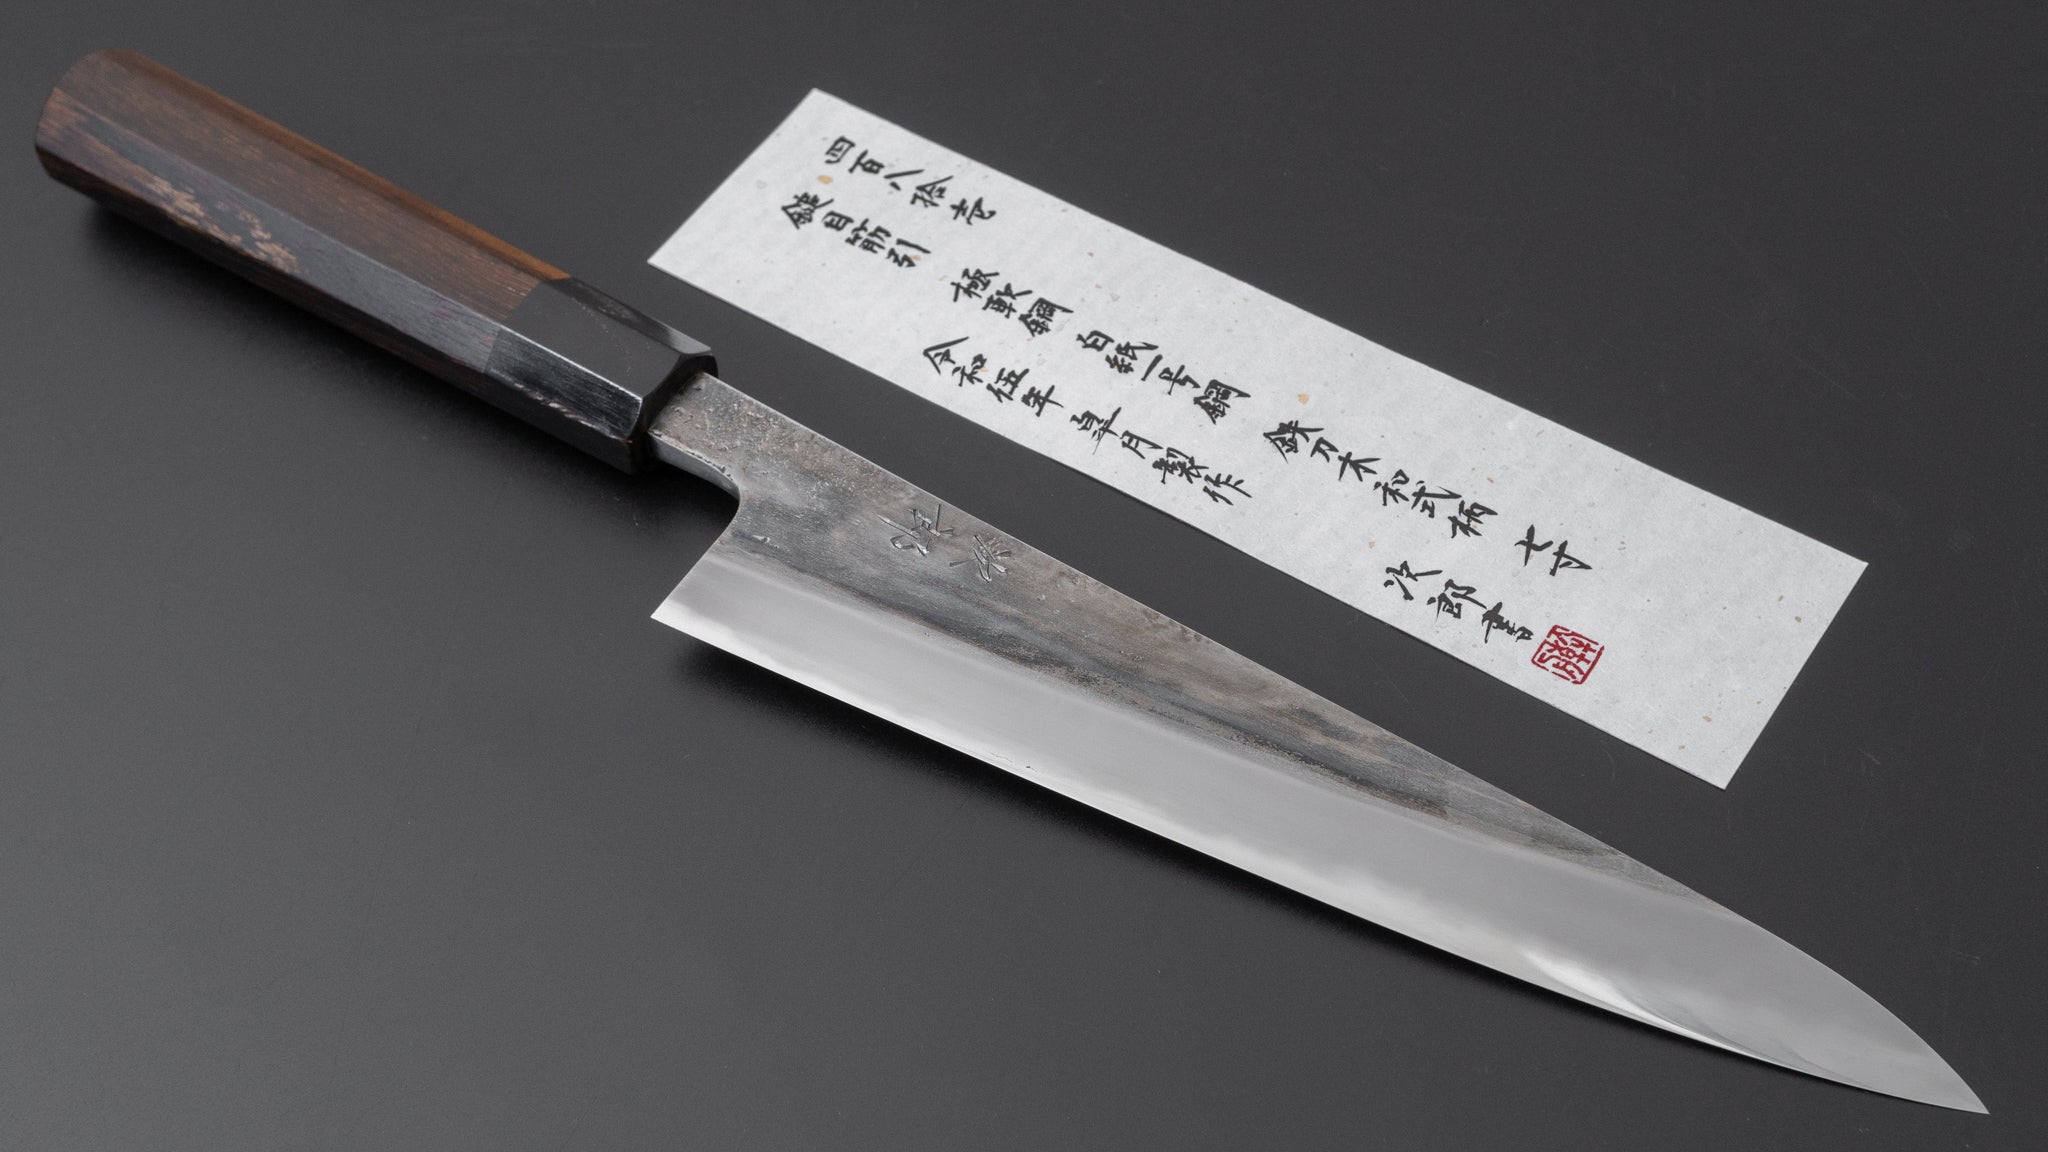 四百八拾壱
鎚目筋引 極軟鋼 白紙一号鋼 鉄刀木和式柄 七寸
令和伍年 皐月製作 次郎書